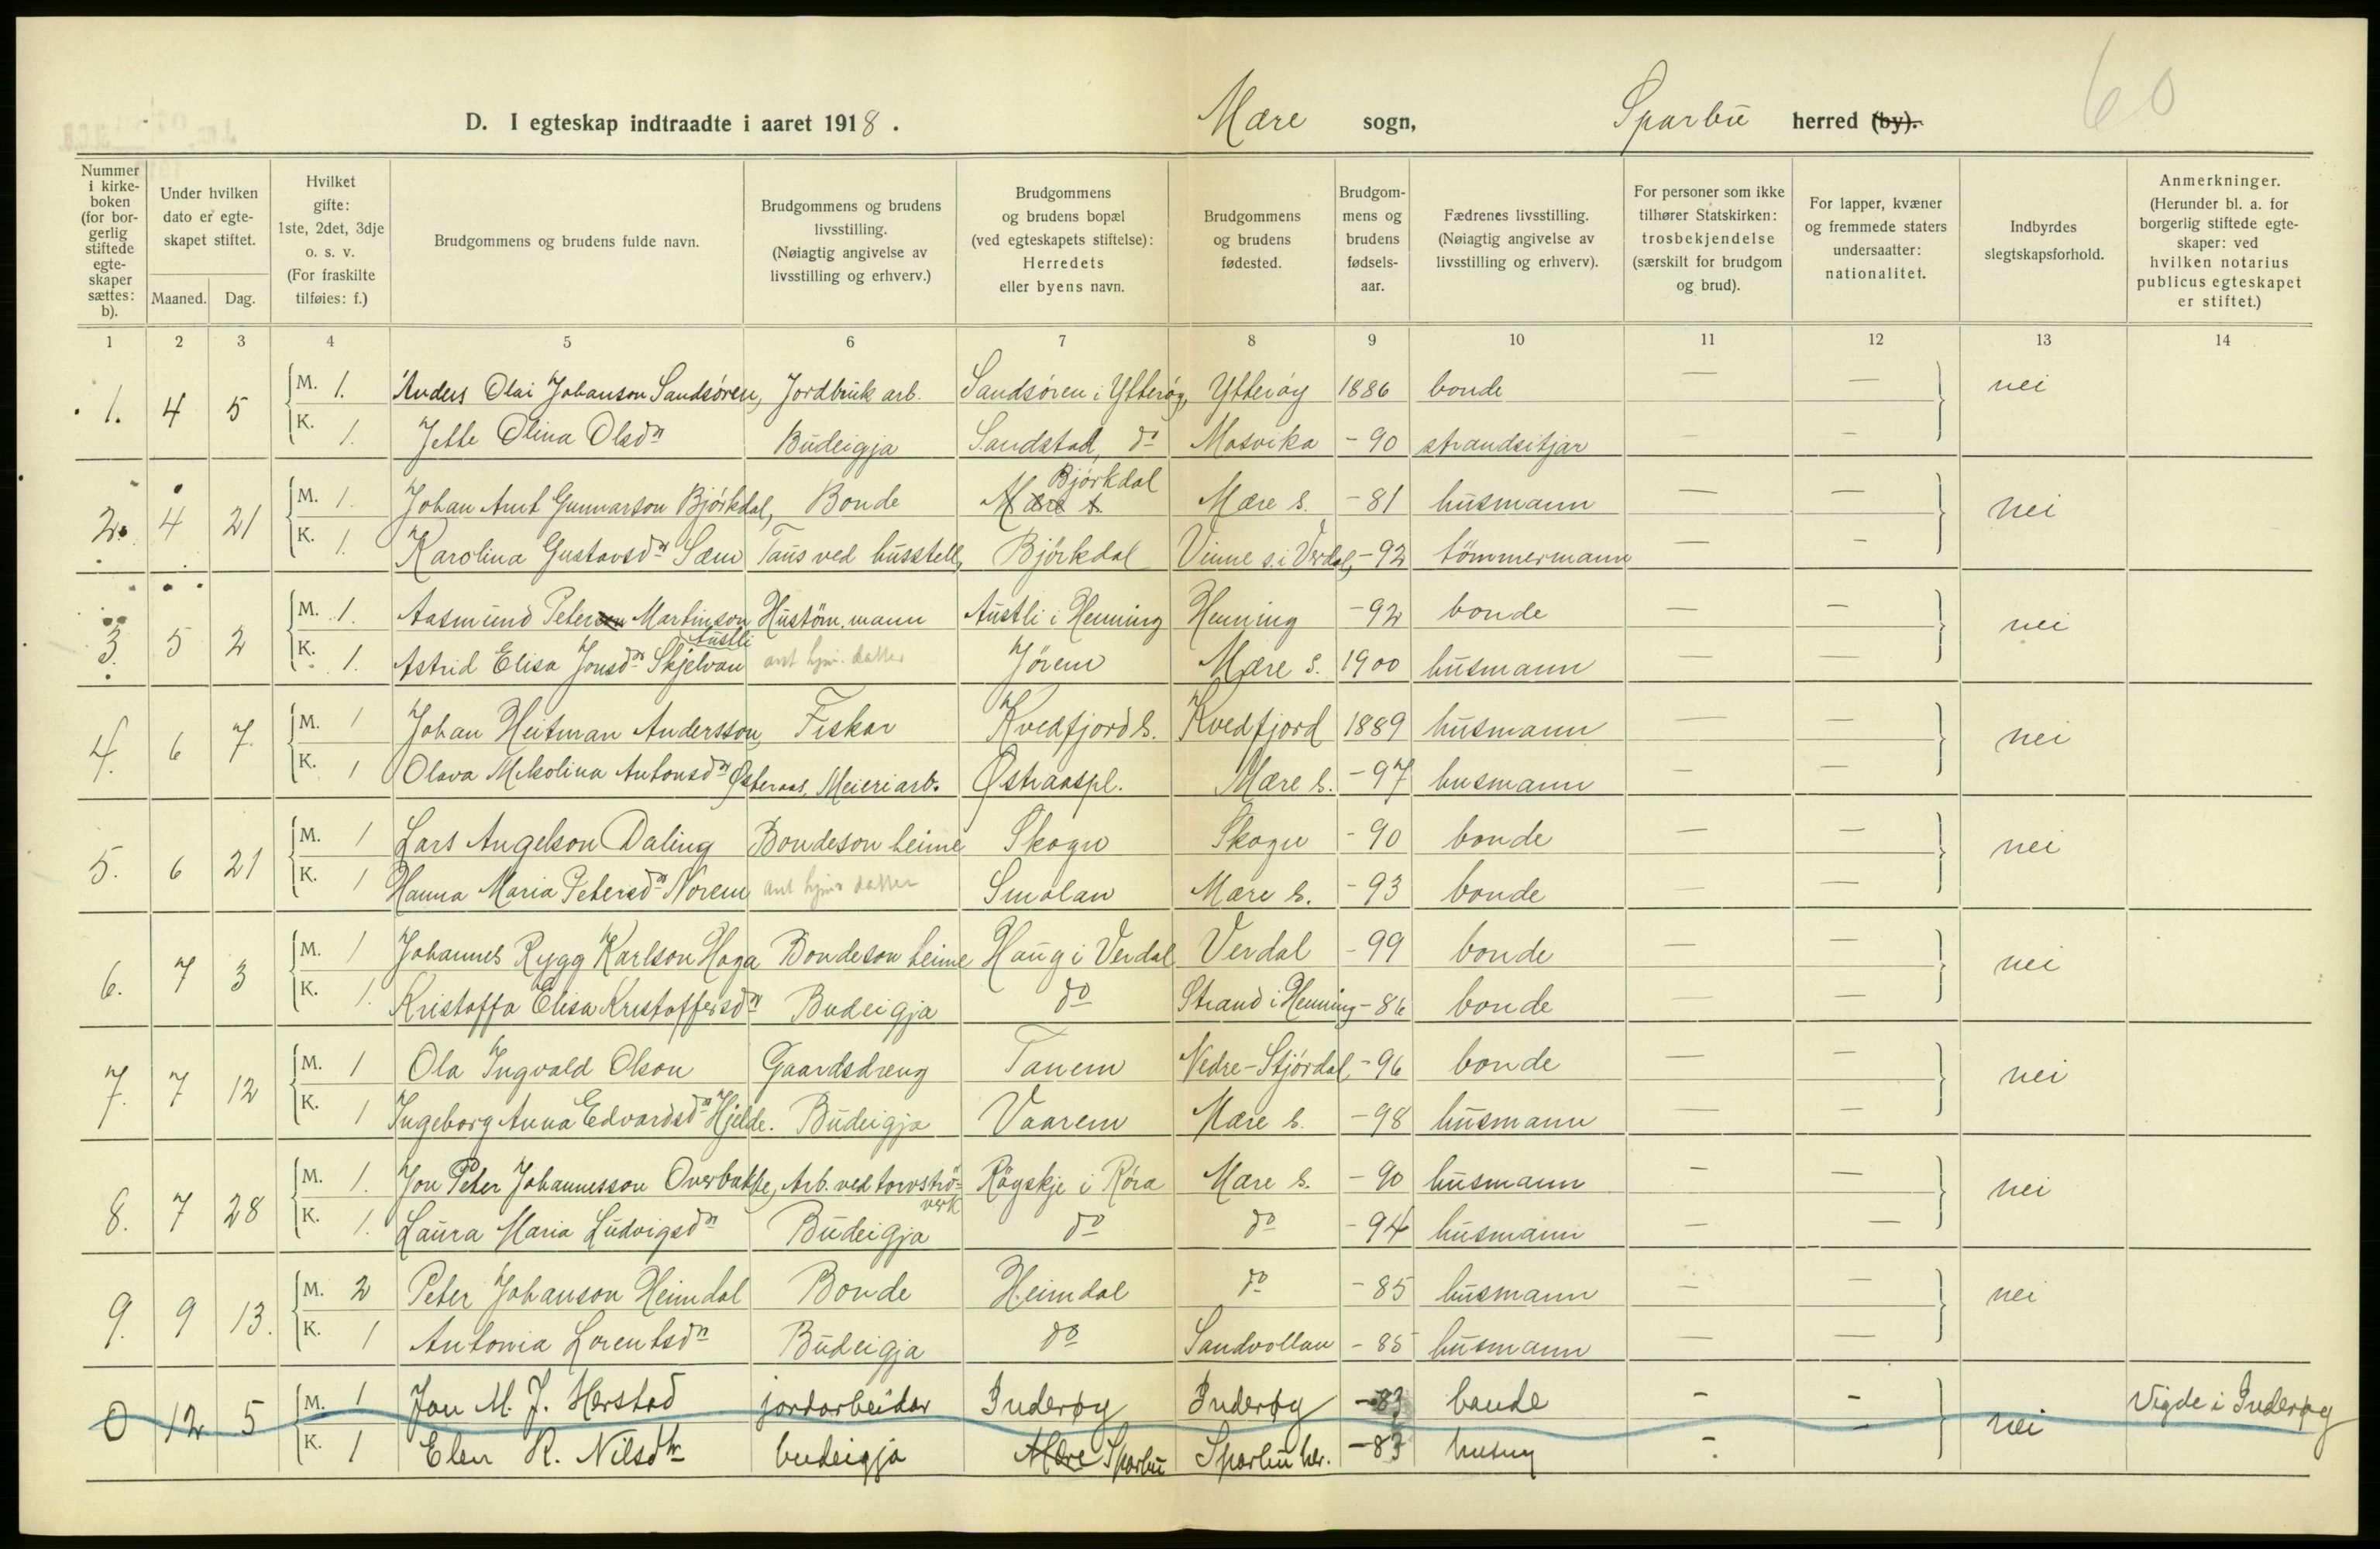 D. I egteskap indtraadte i aaret 1918. Mære sogn, Sparbu herred (by).
60
Nummer i kirke-boken (for bor-gerlig stiftede egte-skaper sættes: b).
Under hvilken dato er egte-skapet stiftet.
Maaned. Dag.
Hvilket gifte: 1ste, 2det, 3dje o. s. v. (For fraskilte tilføies: f.)
Brudgommens og brudens fulde navn.
Brudgommens og brudens livsstilling. (Nøiagtig angivelse av livsstilling og erhverv.)
Brudgommens og brudens bopæl (ved egteskapets stiftelse): Herredets eller byens navn.
Brudgommens og brudens fødested.
Brudgom-mens og brudens fødsels-aar.
Fædrenes livsstilling. (Nøiagtig angivelse av livsstilling og erhverv).
For personer som ikke tilhører Statskirken: trosbekjendelse (særskilt for brudgom og brud).
For lapper, kvæner og fremmede staters undersaatter: nationalitet.
Indbyrdes slegtskapsforhold.
Anmerkninger. (Herunder bl. a. for borgerlig stiftede egte-skaper: ved hvilken notarius publicus egteskapet er stiftet.)
1 2 3 4 5 6 7 8 9 10 11 12 13 14
1. 4 5 M. 1. Anders Olai Johanson Sandsören, Jordbruk arb. Sandsören i Ytterøy, Ytterøy 1886 bonde — — nei
K. 1. Jette Olina Olsdn Budeigja Sandstad, do Mosvika -90 strandsitjar — —
2. 4 21 M. 1. Johan Arnt Gunnarson Bjørkdal, Bonde Mære s. Bjørkdal Mære s. -81 husmann — — nei
K. 1. Karolina Gustavsdn Sæm Taus ved husstell, Bjørkdal Vinne s. i Verdal, -92 tömmermann — —
3. 5 2 M. 1. Aasmund Peter Martinson Austli Hustöm.mann Austli i Henning Henning -92 bonde — — nei
K. 1. Astrid Elisa Jonsdn Skjelvan ant hjm. datter Jörem Mære s. 1900 husmann — —
4. 6 7. M. 1 Johan Heitman Andersson, Fiskar Kvedfjord s. Kvedfjord 1889 husmann — — nei
K. 1 Olava Nikolina Antonsdn Østeraas, Meieriarb. Østraaspl. Mære s. -97 husmann — —
5. 6 21 M. 1 Lars Angelson Daling Bondeson heime Skogn Skogn -90 bonde — — nei
K. 1 Hanna Maria Petersdn Norem ant hjm. datter Smolan Mære s. -93 bonde — —
6. 7 3 M. 1 Johannes Rygg Karlson Haga Bondeson heime Haug i Verdal Verdal -99 bonde — — nei
K. 1. Kristoffa Elisa Kristoffersdn Budeigja do Strand i Henning -86 bonde — —
7. 7 12 M. 1 Ola Ingvald Olson Gaardsdreng Tanem Nedre-Stjørdal, -96 bonde — — nei
K. 1 Ingeborg Anna Edvardsdn Hjelde. Budeigja Vaarem Mære s. -98 husmann — —
8. 7 28 M. 1. Jon Peter Johannesson Overbakke, Arb. ved torvströ-verk Røgskje i Røra Mære s. -90 husmann — — nei
K. 1. Laura Maria Ludvigsdn Budeigja do do -94 husmann — —
9. 9 13. M. 2 Peter Johanson Heimdal Bonde Heimdal do -85 husmann — — nei
K. 1 Antonia Lorentsdn Budeigja do Sandvollan -85 husmann — —
0 12 5 M. 1 Jon M. J. Herstad jordarbeidar Inderøy Inderøy -83 bonde - - nei Vigde i Inderøy
K. 1 Elen K. Nilsdtr budeigja Mære Sparbu Sparbu her. -83 husm - -